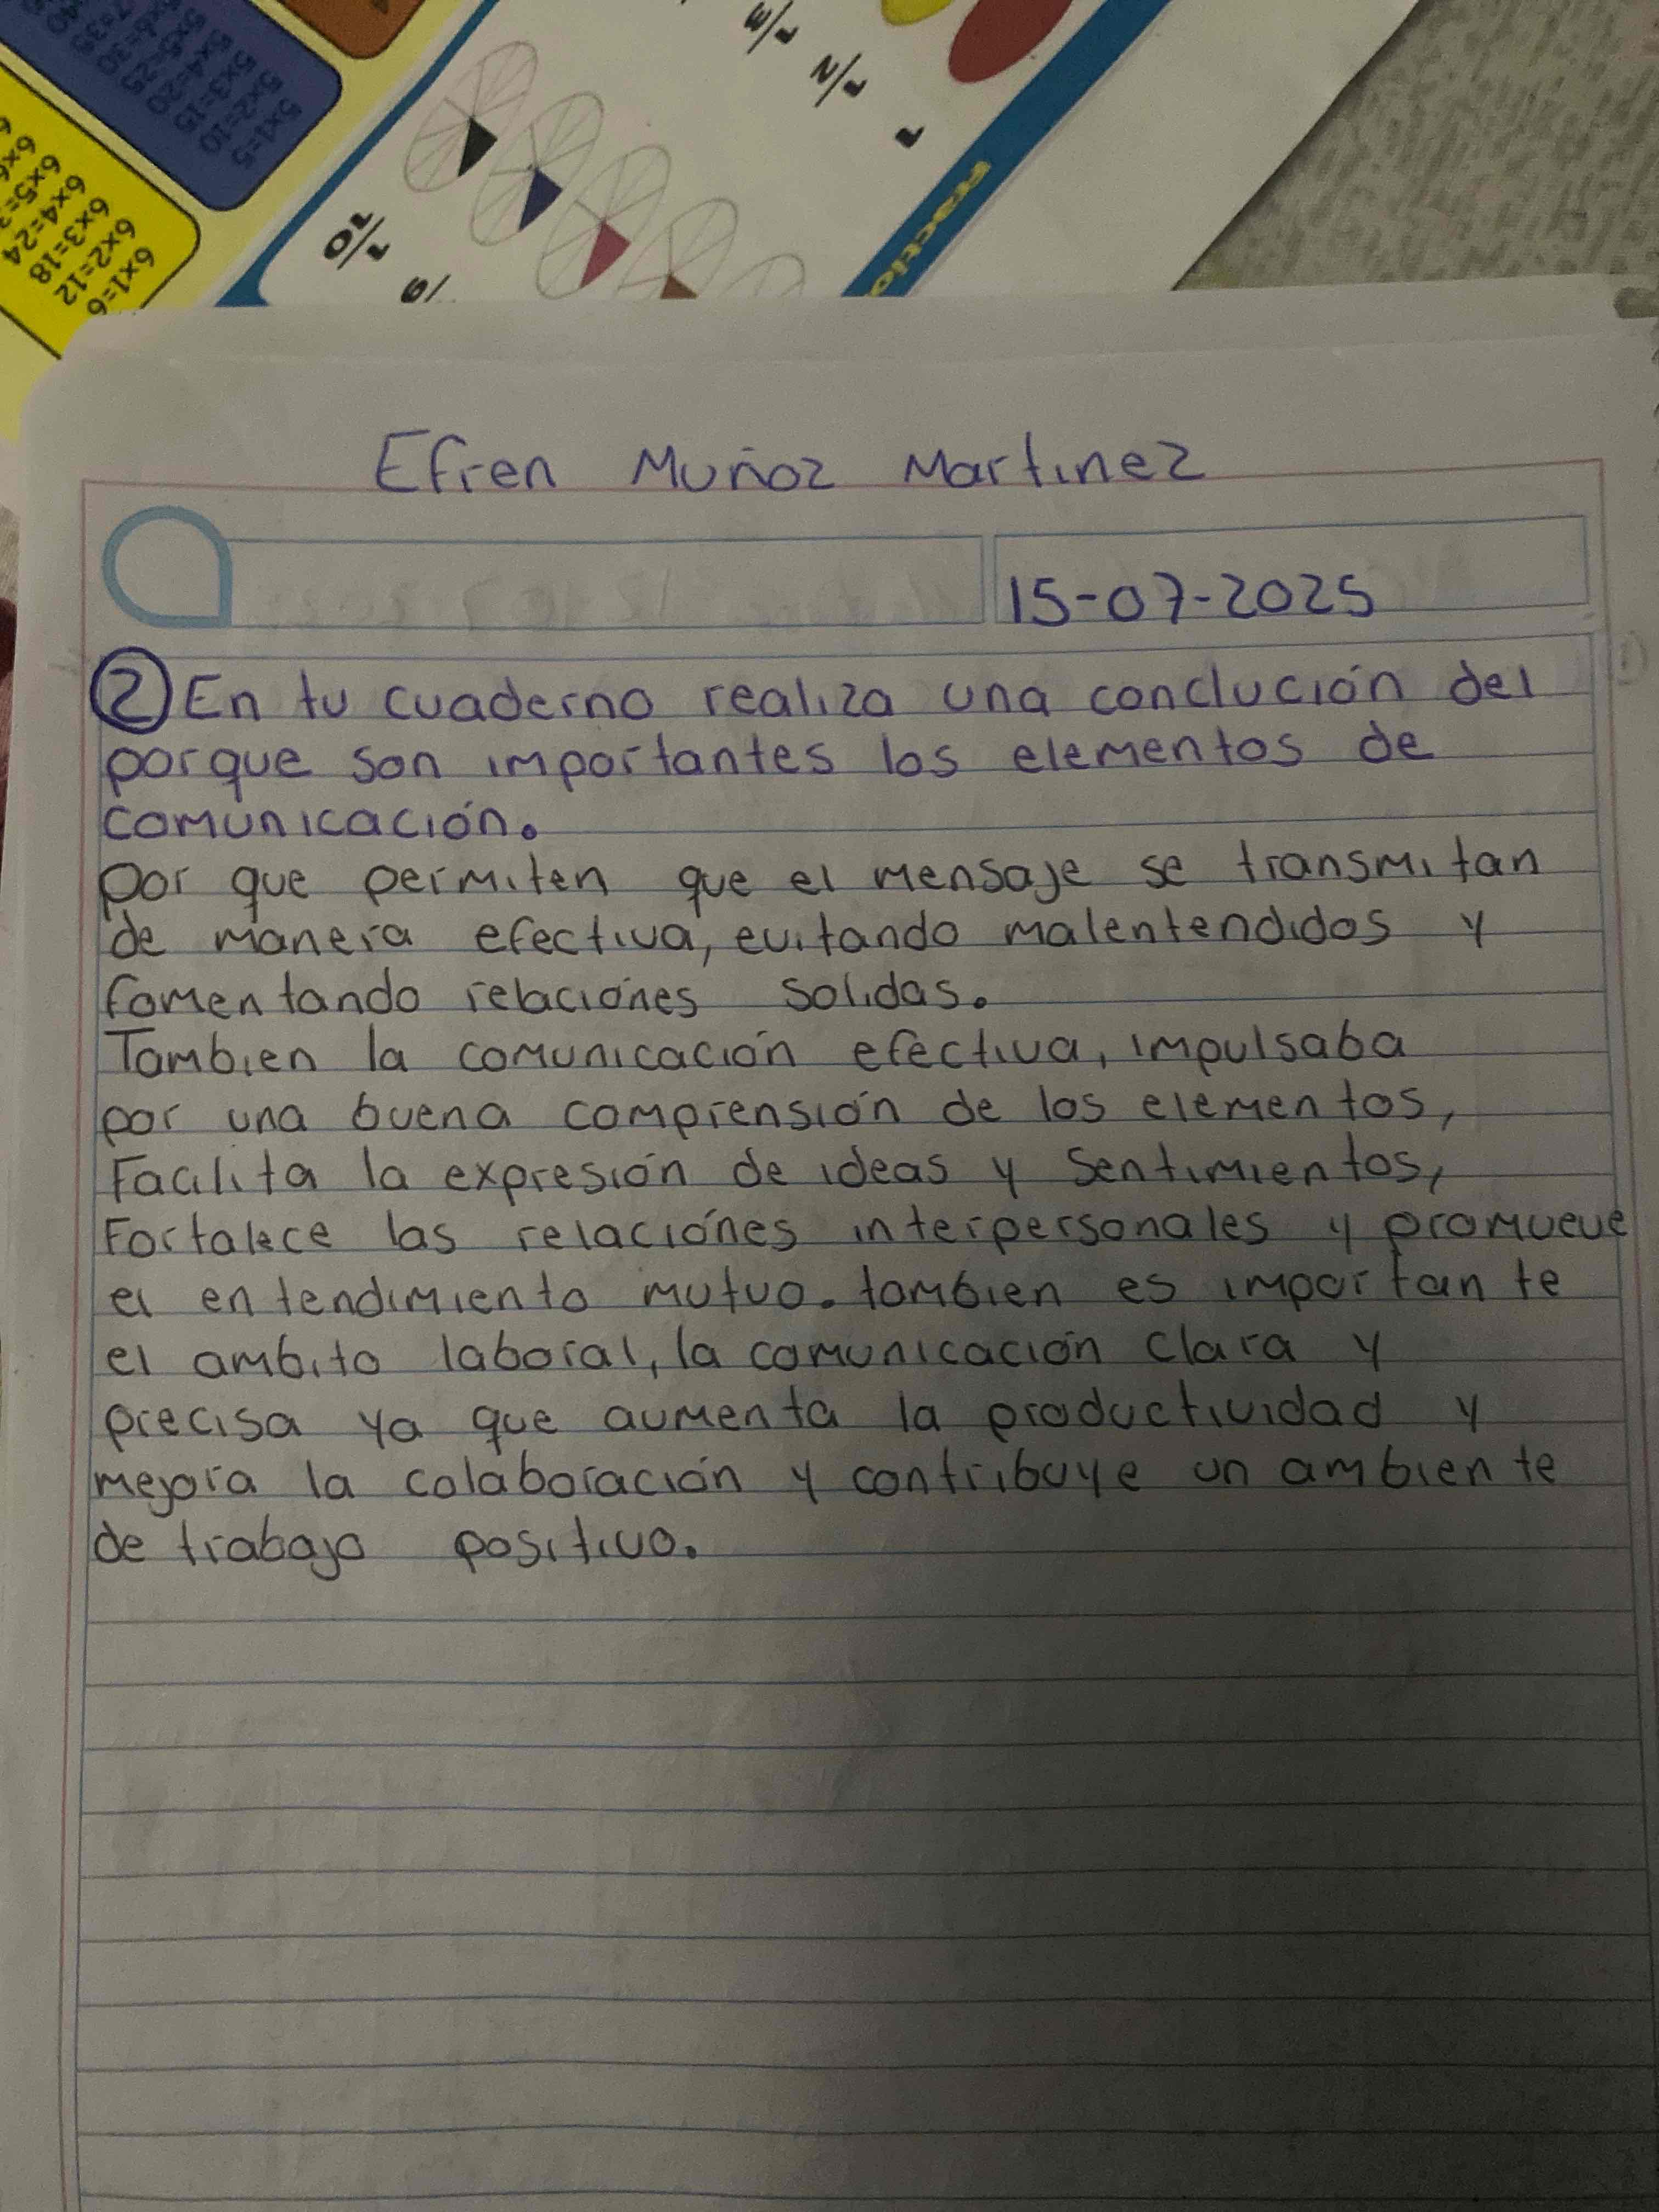 5x1=5
5x2=10
5x3=15
5x4=20
5x5=25
6x1=6
6x2=12
6x3=18
6x4=24
6x5=3
6x6
1
1/2
1/3
1/9
1/10
Fraccio
Efren Muñoz Martinez
15-07-2025
② En tu cuaderno realiza una conclución del
porque son importantes los elementos de
comunicación.
por que permiten que el mensaje se transmitan
de manera efectiva, evitando malentendidos y
fomentando relaciónes solidas.
Tambien la comunicación efectiva, impulsaba
por una buena comprensión de los elementos,
Facilita la expresión de ideas y sentimientos,
Fortalece las relaciónes interpersonales y promueve
el entendimiento mutuo. tambien es importante
el ambito laboral, la comunicación clara y
precisa ya que aumenta la productividad y
mejora la colaboración y contribuye un ambiente
de trabajo positivo.